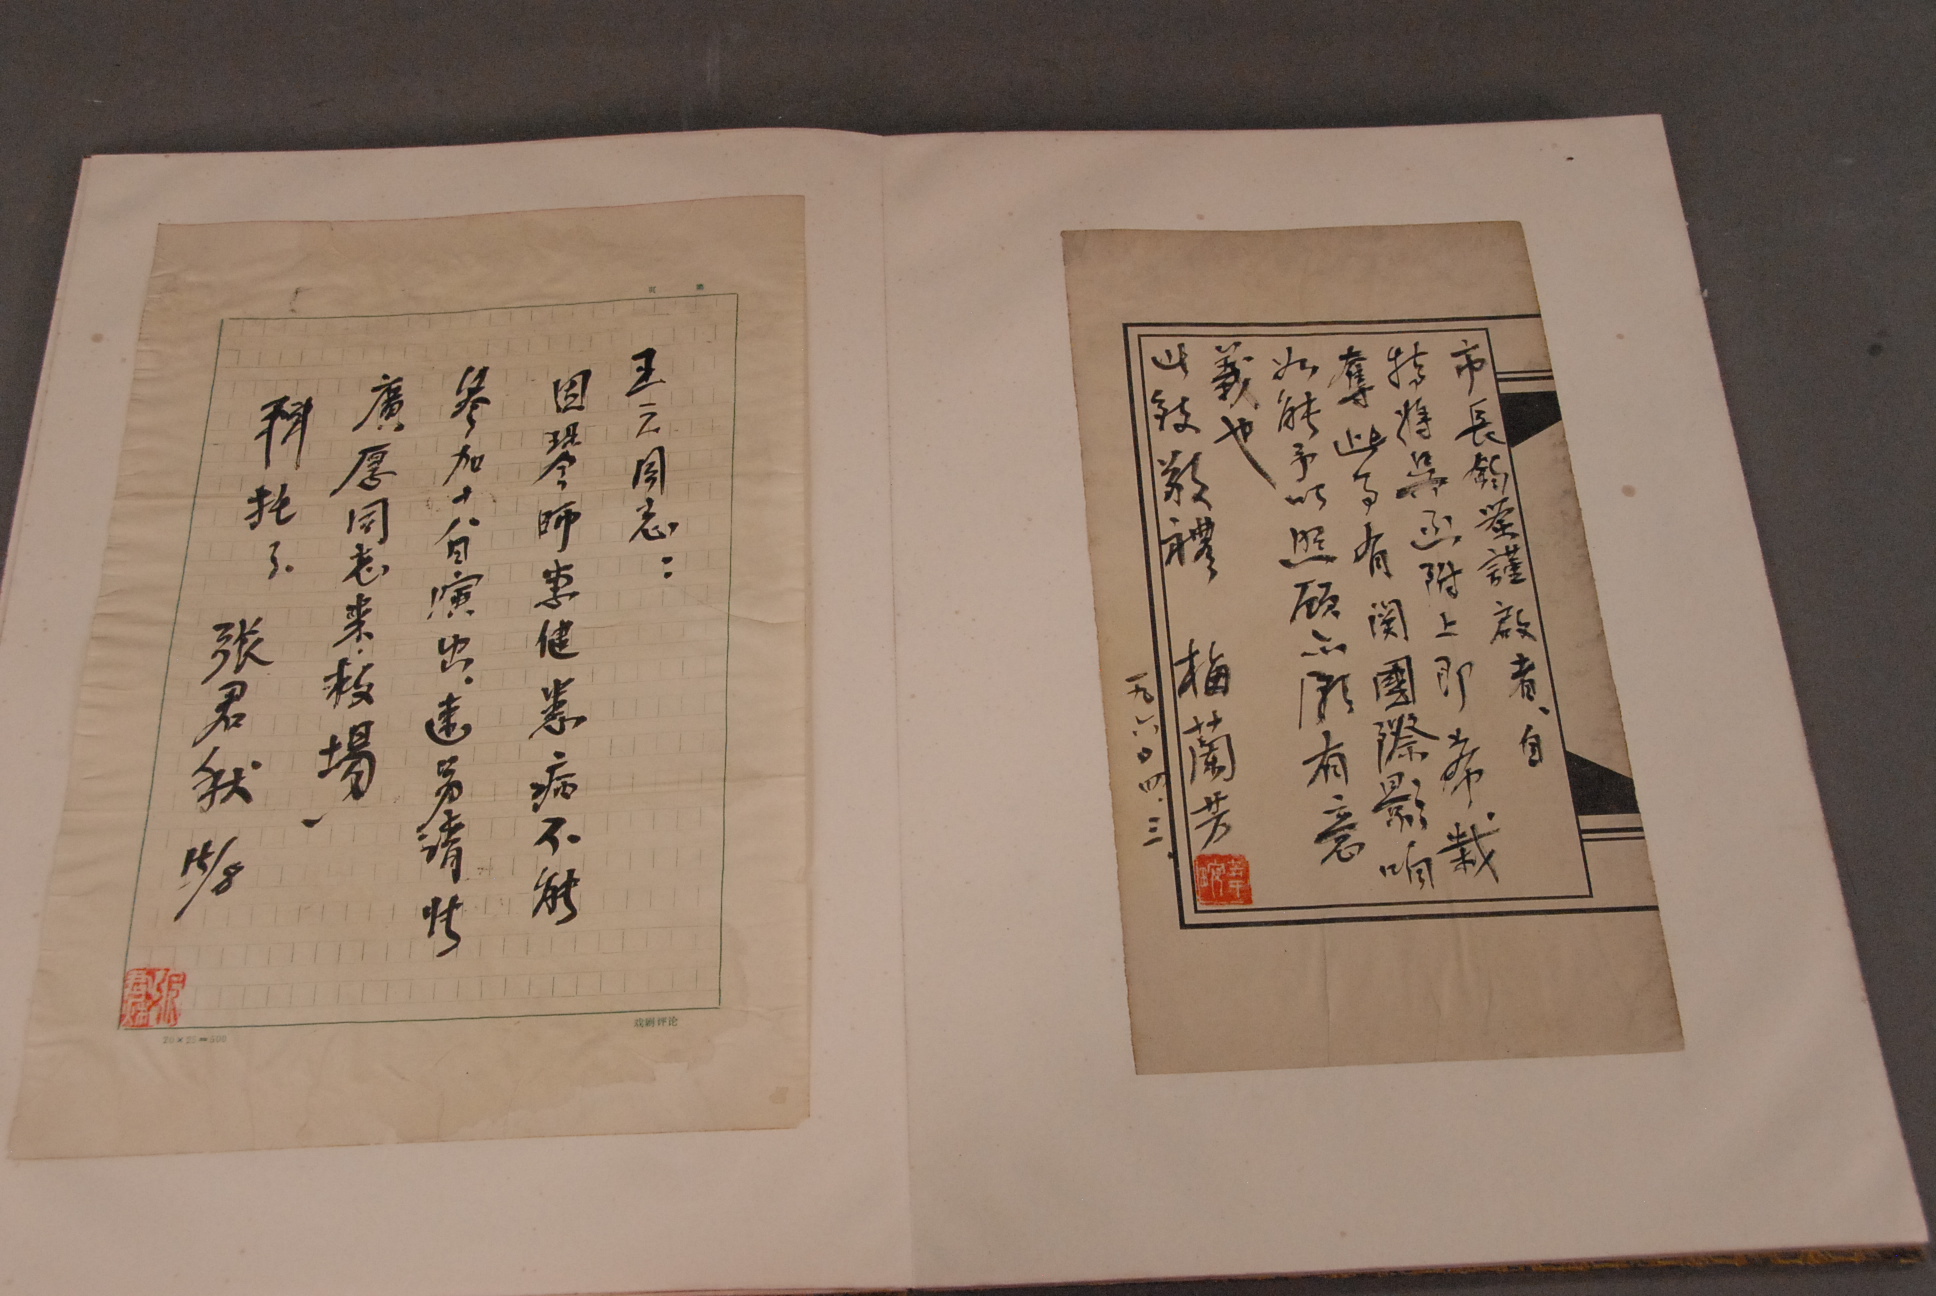 王云同志：
因琴师李健患病不能
参加十八日演出，速另请张
廣厚同志来救场，
拜托了。
张君秋 15/8
戏剧评论
20×25=500
市長鈞鉴謹啟者、自
持將吴函附上即希裁
奪此事有関國際影响
如能予以照顾亦颇有意
義也
此致敬禮 梅蘭芳
一九六〇、四、三、